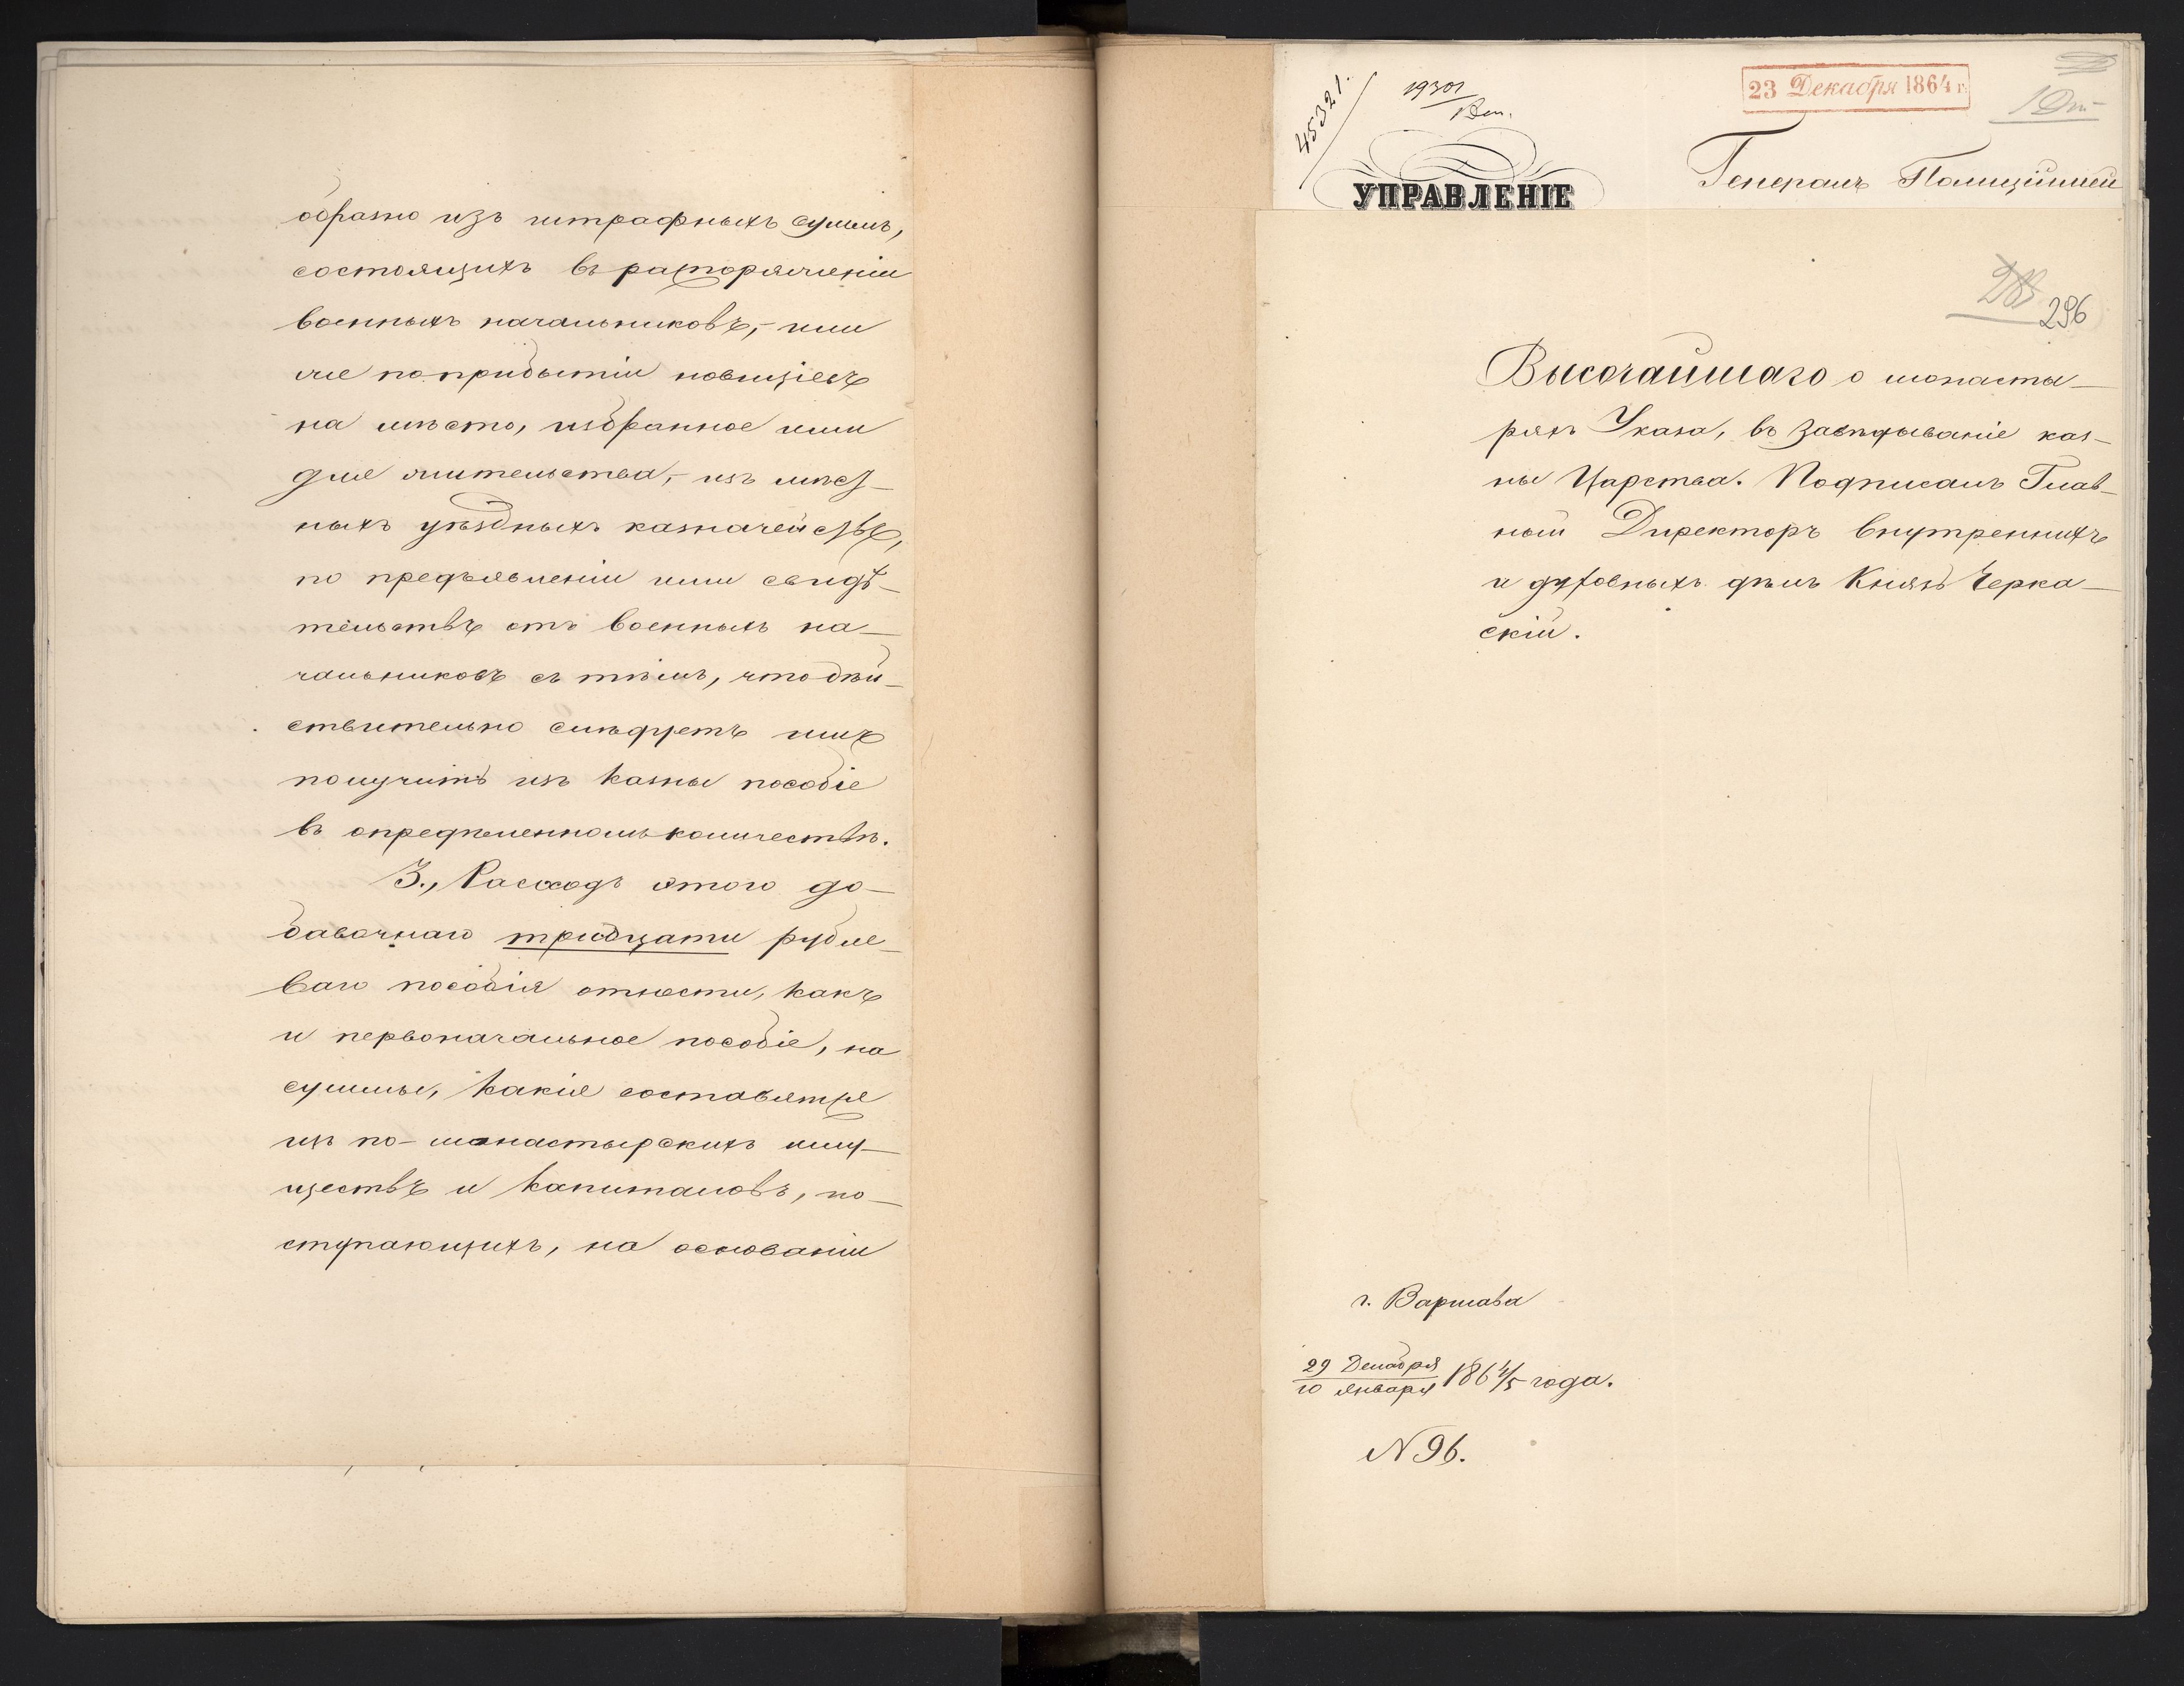 образно изъ штрафныхъ суммъ,
состоящихъ въ распоряженіи
военныхъ начальниковъ, – или
же по прибытіи новиціевъ
на мѣсто, избранное ими
для жительства, – изъ мѣст-
ныхъ уѣздныхъ казначействъ,
по предъявленіи ими свидѣ-
тельствъ отъ военныхъ на-
чальниковъ съ тѣмъ, что дѣй-
ствительно слѣдуетъ имъ
получить изъ казны пособіе
въ опредѣленномъ количествѣ.
3., Расходъ этого до-
бавочнаго тридцати рубле-
ваго пособія отнести, какъ
и первоначальное пособіе, на
суммы, какія составятся
изъ по-монастырскихъ иму-
ществъ и капиталовъ, по-
ступающихъ, на основаніи
45321.
19301
23 Декабря 1864 г.
УПРАВЛЕНІЕ
Генералъ Полиціймей
296
Высочайшаго о монасты-
ряхъ Указа, въ завѣдываніе каз-
ны Царства. Подписалъ Глав-
ный Директоръ Внутреннихъ
и духовныхъ дѣлъ Князь Черка-
скій.
г. Варшава
29 Декабря
10 Января 1864/5 года.
N 96.